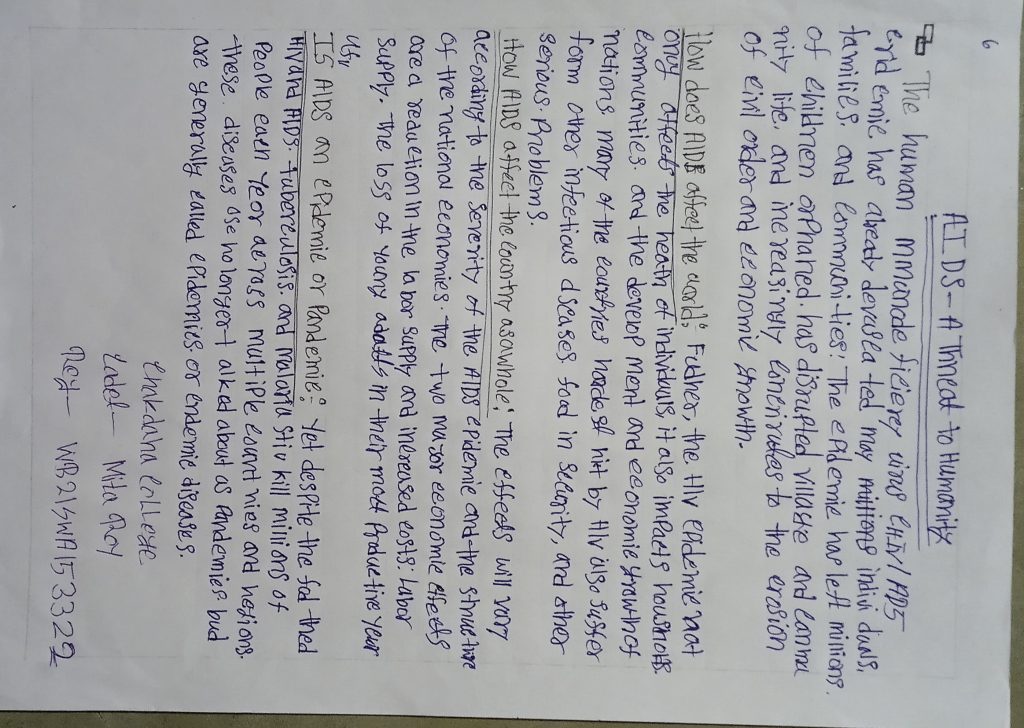 6
AIDS - A Threat to Humanity
The human mmunode ficiency virus CHIV/AIDS
end emic has already devasta ted may millions indivi duals,
families. and communi-ties: The epidemic has left millions.
of children orphaned. has disrupted village and commu
nity life, and increasingly contributes to the erosion
of civil order and economic growth.
How does AIDS affect the world: Further, the HIV epidemic not
only affects the health of individuals, it also impacts households.
communities. and the develop ment and economic growth of
nations many of the countries hardest hit by HIV also suffer
form other infectious dseases. food in security, and other
serious. Problems.
How AIDS affect the country as a whole: The effects will vary
according to the severity of the AIDS epidemic and the structure
of the national economies. The two major economic effects
are a reduction in the labor supply and increased costs: Labor
supply. The loss of young adults in their most Productive year
IS AIDS an epidemic or Pandemic: Yet despite the fact thed
HIV and AIDS. tuberculosis. and malaria still kill millions of
People each year across multiple countries and nations.
these. diseases are no longer t alked about as Pandemics but
are generally called epidemics. or endemic diseases.
Chakdaha College
Cadet- Mita Roy
Reg- WB21SWA1533229